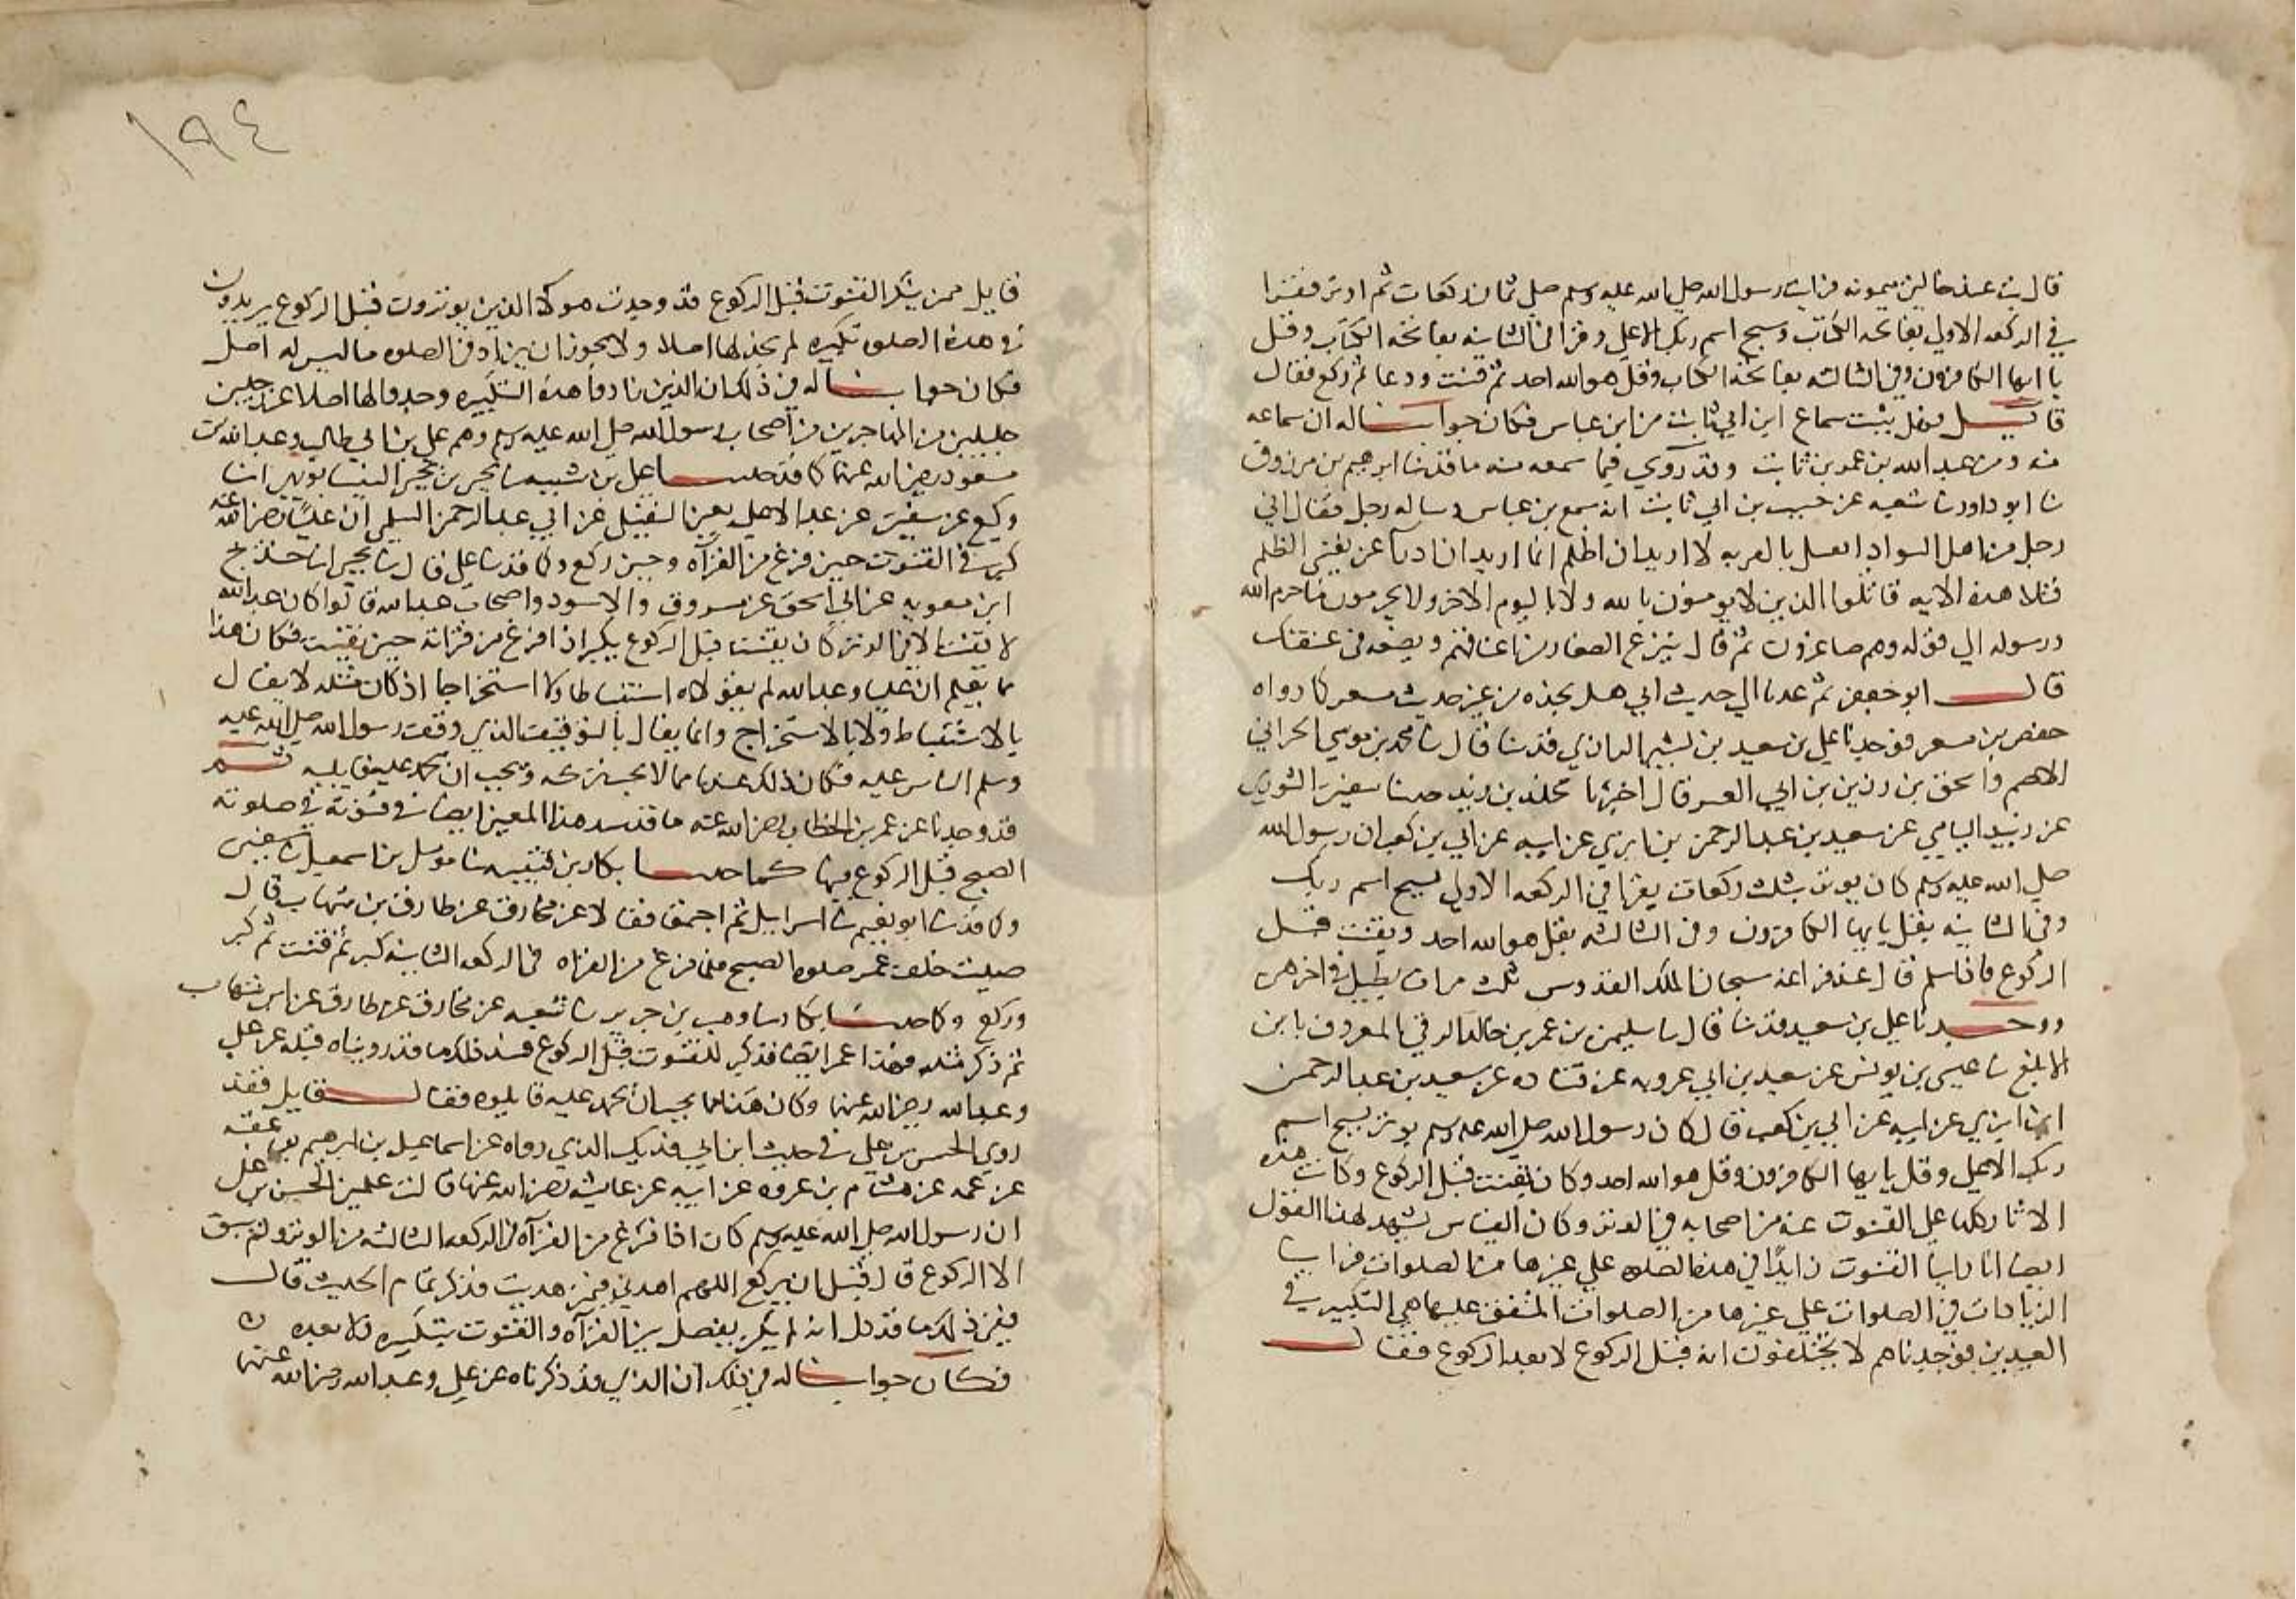 قال بت عند خالتي ميمونه فرايت رسول الله صلي الله عليه وسلم صلي ثمان ركعات ثم اوتر فقرا
في الركعه الاولي بفاتحه الكتاب وسبح اسم ربك الاعلي وقرا في الثانيه بفاتحه الكتاب وقل
يا ايها الكافرون وفي الثالثه بفاتحه الكتاب وقل هو الله احد ثم قنت ودعا ثم ركع فقال
قايل فهل يثبت سماع ابن ابي ثابت من ابن عباس فكان جوابنا له ان سماعه
منه ومن عبد الله بن عمر بن ثابت وقد روي فيما سمعه منه ما قد نا ابرهيم بن مرزوق
نا ابو داود نا شعبه عن حبيب بن ابي ثابت انه سمع بن عباس وساله رجل فقال اني
رجل من اهل السواد لا اريد ان اظلم انما اريد ان ادفع عن نفسي الظلم
فتلا هذه الايه قاتلوا الذين لا يومنون بالله ولا باليوم الاخر ولا يحرمون ما حرم الله
ورسوله الي قوله وهم صاغرون ثم قال ينزع الصغار من اعناقهم ويضعه في عنقك
قال ابو جعفر ثم عدنا الي حديث ابي هل نجده من غير حديث مسعر كما رواه
حفص بن مسعر فوجدنا علي بن سعيد بن بشير الرازي قد نا قال نا محمد بن موسي الحراني
الاصم واسحق بن رزين بن ابي قال اخبرنا مخلد بن يزيد نا سفين الثوري
عن زبيد اليامي عن سعيد بن عبد الرحمن بن ابزي عن ابيه عن ابي بن كعب ان رسول الله
صلي الله عليه وسلم كان يوتر بثلث ركعات يقرا في الركعه الاولي بسبح اسم ربك
وفي الثانيه بقل يايها الكافرون وفي الثالثه بقل هو الله احد ويقنت قبل
الركوع فاذا سلم قال عند فراغه سبحان الملك القدوس ثلث مرات يطيل في اخرهن
ووجدنا علي بن سعيد قد نا قال نا سليمن بن عمر بن خالد الرقي المعروف بابن
الاقطع نا عيسي بن يونس عن سعيد بن ابي عروبه عن قتاده عن سعيد بن عبد الرحمن
ابن ابزي عن ابيه عن ابي بن كعب قال كان رسول الله صلي الله عليه وسلم يوتر بسبح اسم
ربك الاعلي وقل يايها الكافرون وقل هو الله احد وكان يقنت قبل الركوع وكانت هذه
الاثار كلها علي القنوت عنه من اصحابه في الوتر وكان القياس يشهد لهذا القول
ايضا انا راينا القنوت زايدا في هذه الصلاه علي غيرها من الصلوات فراينا
الزيادات في الصلوات علي غيرها من الصلوات المتفق عليها هي التكبير في
العيدين فوجدناهم لا يختلفون انه قبل الركوع لا بعد الركوع فقال
١٩٤
قايل ممن ينكر القنوت قبل الركوع قد وجدت هولاء الذين يوترون قبل الركوع يزيدون
في هذه الصلوه تكبيره لم نجد لها اصلا ولا يجوز ان يزاد في الصلوه ما ليس له اصل
فكان جوابنا له في ذلك ان الذين زادوا هذه التكبيره وجدوا لها اصلا عن رجلين
جليلين من المهاجرين من اصحاب رسول الله صلي الله عليه وسلم وهم علي بن ابي طالب وعبد الله بن
مسعود رضي الله عنهما كما قد حدثنا علي بن شيبه نا يحيي بن يحيي النيسابوري انا
وكيع عن سفين عن عبد الاعلي يعني الثعلبي عن ابي عبد الرحمن السلمي ان عليا رضي الله عنه
كبر في القنوت حين فرغ من القراه وحين ركع وكما قد نا علي قال نا يحيي انا خديج
ابن معويه عن ابي اسحق عن مسروق والاسود واصحاب عبد الله قالوا كان عبد الله
لا يقنت الا في الوتر كان يقنت قبل الركوع يكبر اذا فرغ من قراته حين يقنت فكان هذا
مما يعلم ان عليا وعبد الله لم يقولاه استنباطا ولا استخراجا اذ كان مثله لا يقال
بالاستنباط ولا بالاستخراج وانما يقال بالتوقيف الذي وقفت رسول الله صلي الله عليه
وسلم الناس عليه فكان ذلك عندنا مما لا يحسن ويجب ان يحمد عليه قايليه ثم
قد وجدنا عن عمر بن الخطاب رضي الله عنه ما قد شد هذا المعني ايضا في قنوته في صلوته
الصبح قبل الركوع فيها كما حدثنا بكار بن قتيبه نا مومل بن اسمعيل نا سفين
وكما قد نا ابو نعيم نا اسراييل ثم اجمعا فقالا عن مخارق عن طارق بن شهاب قال
صليت خلف عمر صلوه الصبح فلما فرغ من القراه في الركعه الثانيه كبر ثم قنت ثم كبر
وركع وكما حدثنا بكار نا وهب بن جرير نا شعبه عن مخارق عن طارق بن شهاب
ثم ذكر مثله فهذا عمر ايضا قد كبر للقنوت قبل الركوع فشد ذلك ما قد رويناه قبله عن علي
وعبد الله رضي الله عنهما وكان هذا مما يجب ان يحمد عليه قايلوه فقال قايل فقد
روي الحسن بن علي في حديث ابن ابي فديك الذي رواه عن اسماعيل بن ابرهيم بن عقبه
عن عمه عن هشام بن عروه عن ابيه عن عايشه رضي الله عنها قالت علمني الحسن بن علي
ان رسول الله صلي الله عليه وسلم كان اذا فرغ من القراه في الركعه الثالثه من الوتر ولم يبق
الا الركوع قال قبل ان يركع اللهم اهدني فيمن هديت فذكر تمام الحديث قال
ففي ذلك ما قد دل انه لم يكن يفصل بين القراه والقنوت بتكبيره ولا بعده
فكان جوابنا له في ذلك ان الذي قد ذكرناه عن علي وعبد الله رضي الله عنهما